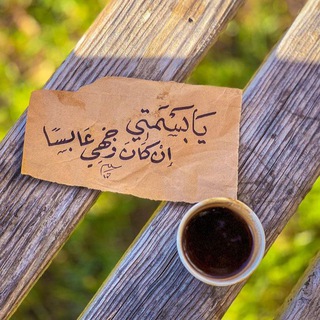 يَا بَسْمَتِي
إِنْ كَانَ وَجْهِي عَابِسًا